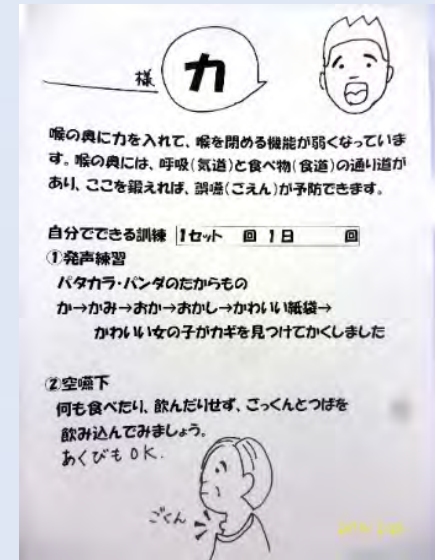 様
カ
喉の奥に力を入れて、喉を閉める機能が弱くなっていま
す。喉の奥には、呼吸(気道)と食べ物(食道)の通り道が
あり、ここを鍛えれば、誤嚥(ごえん)が予防できます。
自分でできる訓練 1セット 回 1日 回
①発声練習
パタカラ・パンダのたからもの
か→かみ→おか→おかし→かわいい紙袋→
かわいい女の子がカギを見つけてかくしました
②空嚥下
何も食べたり、飲んだりせず、ごっくんとつばを
飲み込んでみましょう。
あくびもOK.
ごくん